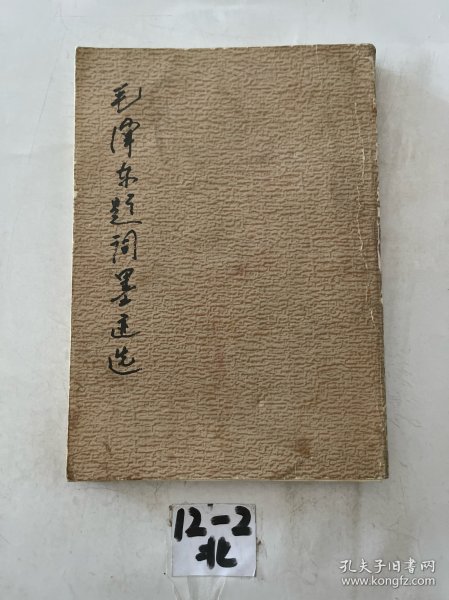 毛泽东题词墨迹选
12-2
北
孔夫子旧书网
www.kongfz.com